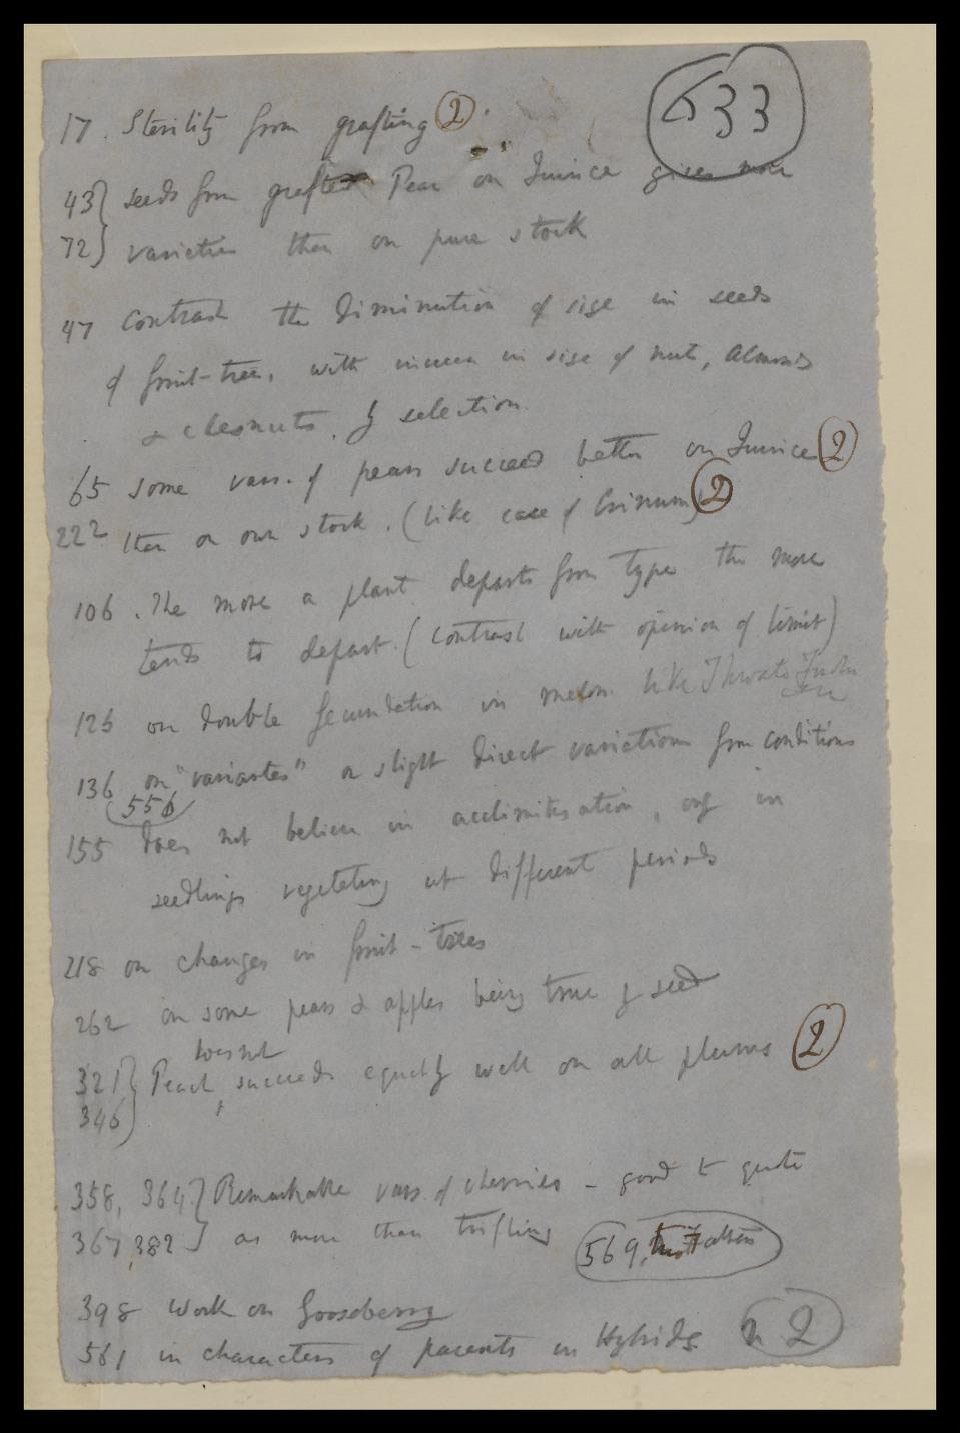 633
17. Sterility from grafting 2
43 } seeds from grafted Pear on Quince gives more
72 } varieties than on pure stock
47 Contrast the diminution of size in seeds
of fruit-trees, with increase in size of nuts, almonds
& chesnuts, by selection
65 some vars. of pears succeed better on Quince 2
222 than on own stock. (like case of Crinum) 2
106. The more a plant departs from type the more
tends to depart. (contrast with opinion of limit)
126 on double fecundation in melon. like
136 on "variantes" or slight direct variations from conditions
(556)
155 does not believe in acclimitisation, only in
seedlings vegetating at different periods
218 on changes in fruit-trees
262 on some pears & apples being true by seed
does not
321 } Peach, succeeds equally well on all plums 2
346 }
358, 364 } Remarkable vars. of cherries - good to quote
367, 382 } as more than trifling
569,
398 Work on Gooseberry
561 in characters of parents in Hybrids 2